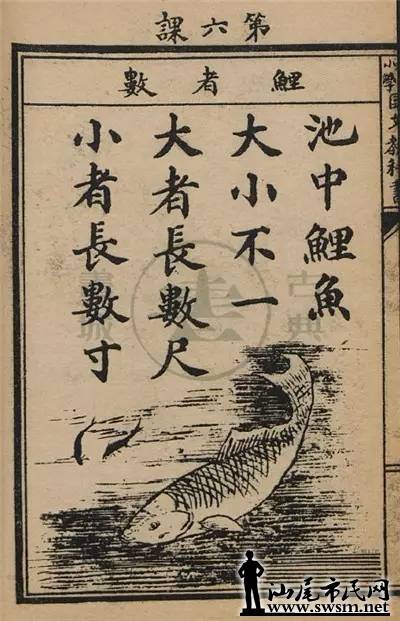 第六課
鯉者數
池中鯉魚
大小不一
大者長數尺
小者長數寸
小學國文教科書
古典
汕尾市民网
www.swsm.net